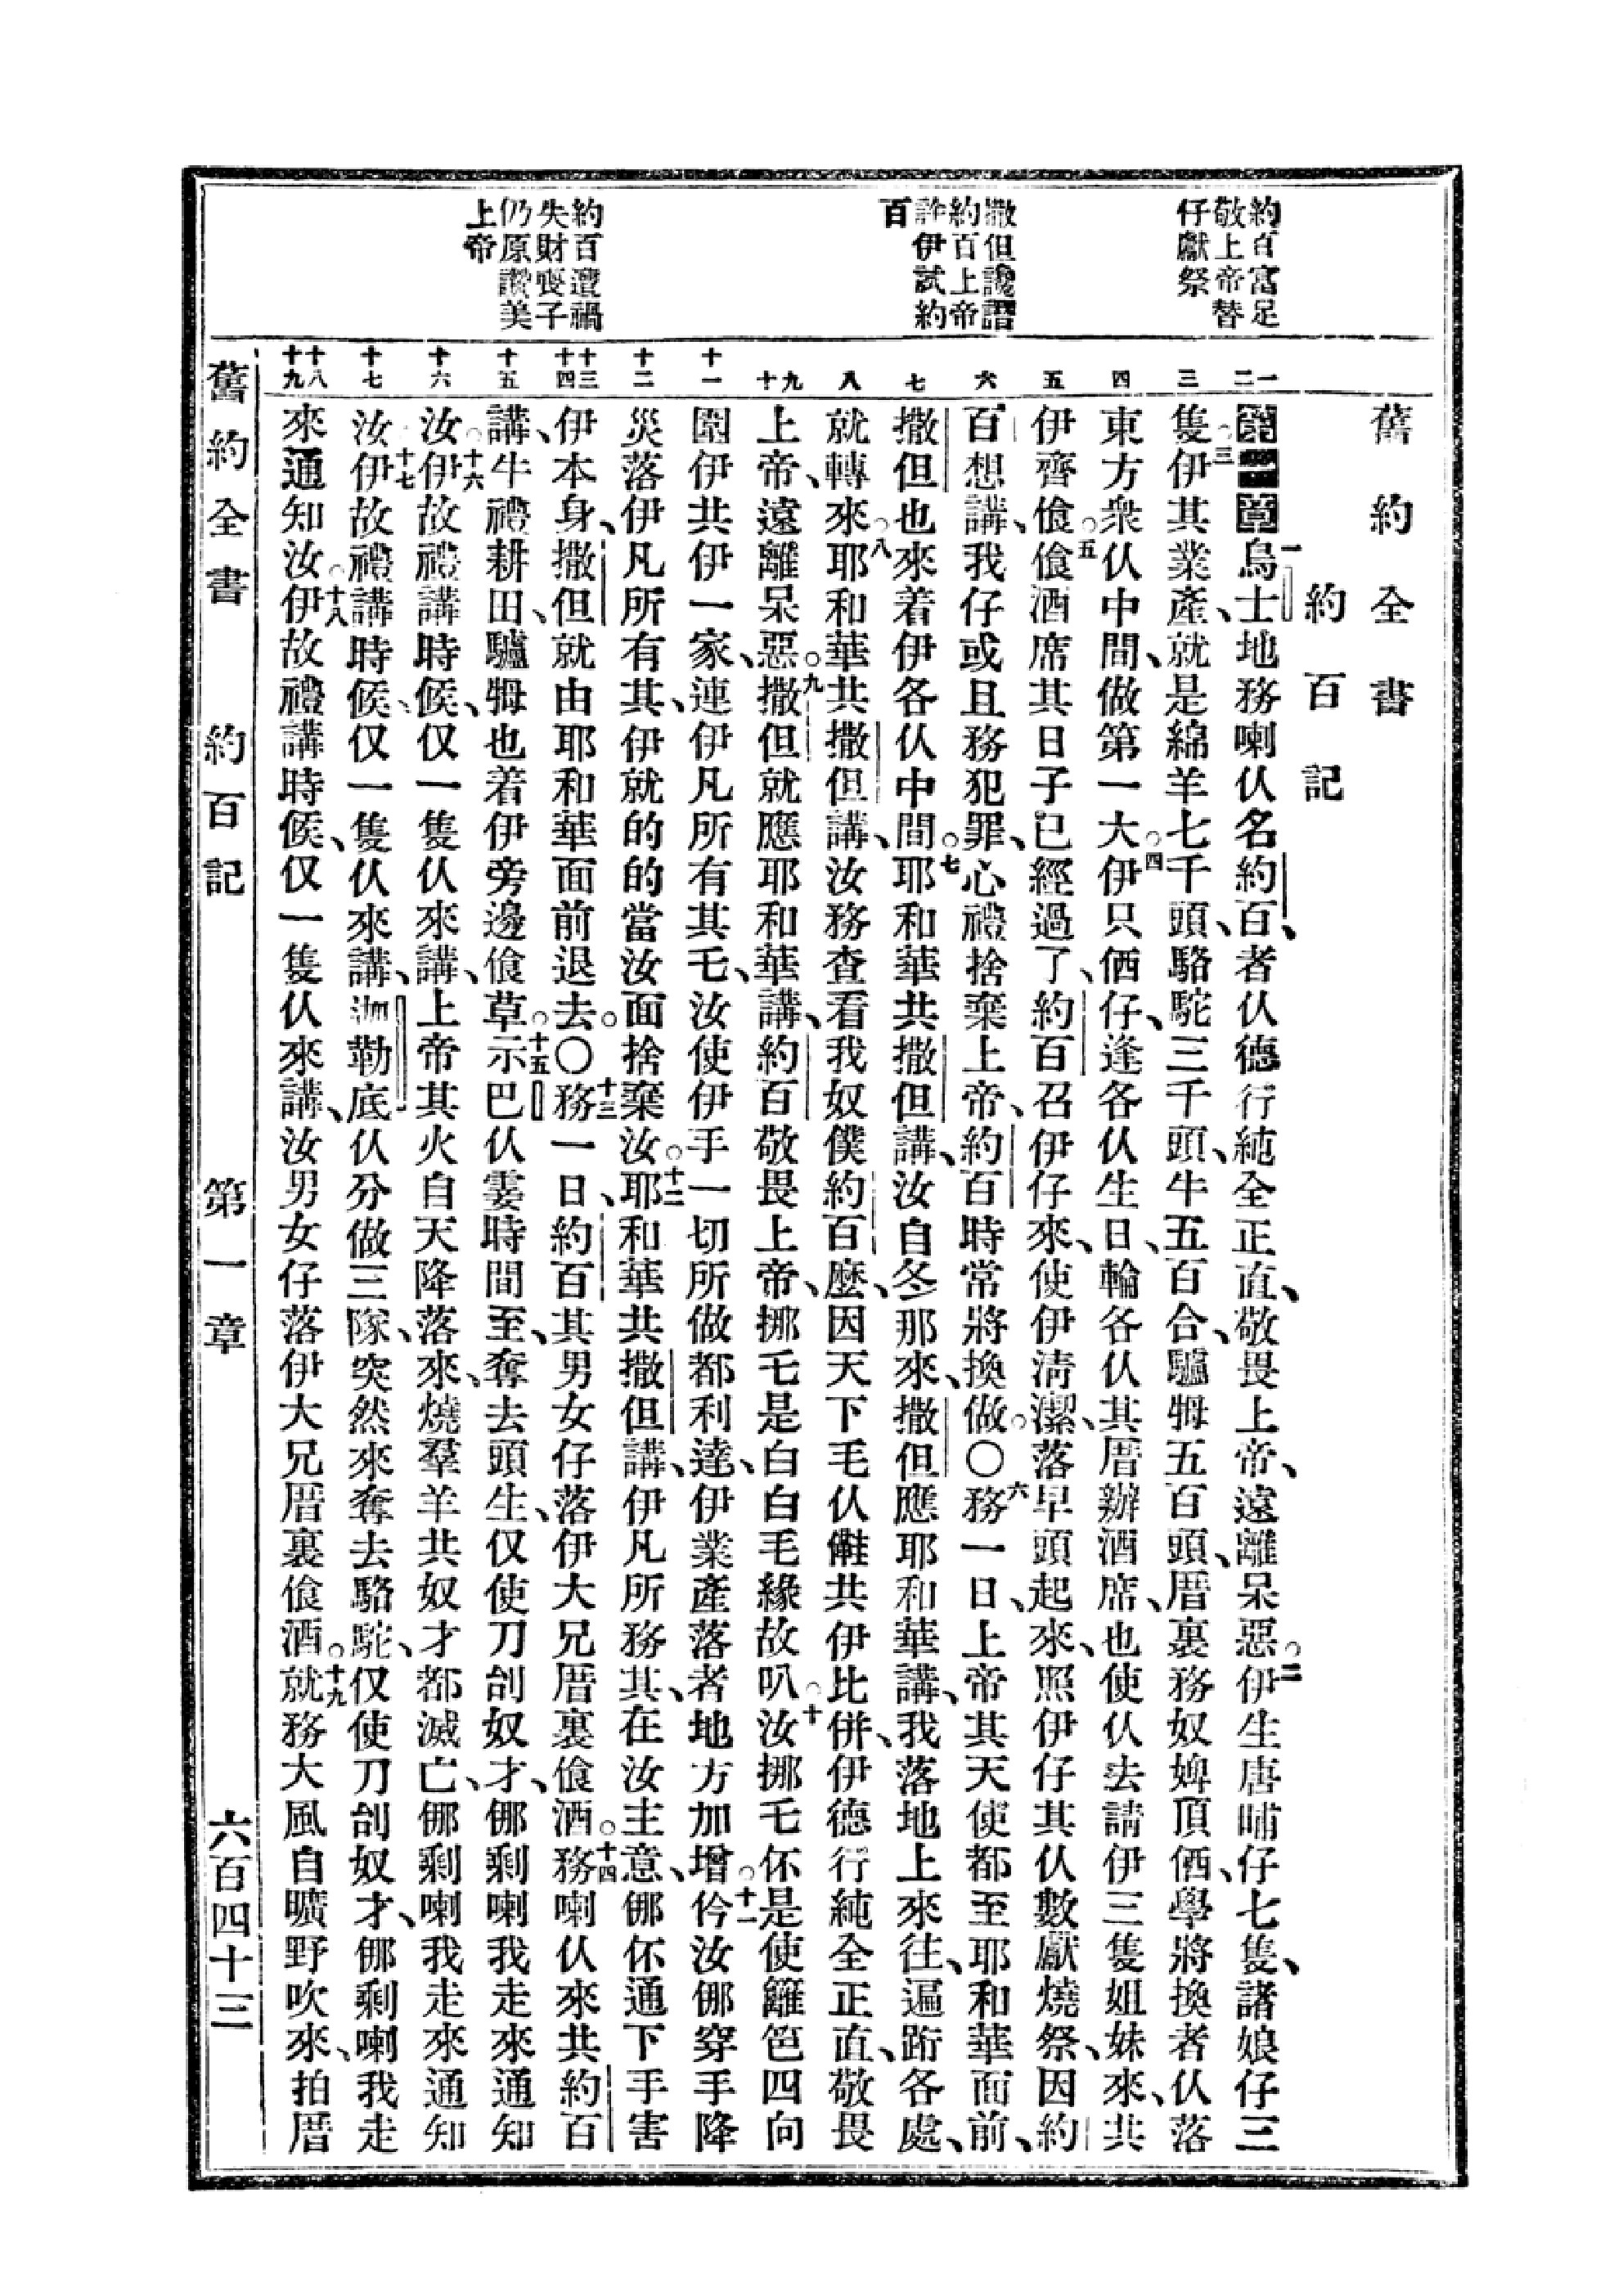 約百富足
敬上帝替
仔獻祭
撒但讒譖
約百上帝
許伊試約
百
約百遭禍
失財喪子
仍原讚美
上帝
舊約全書
約百記
一 二 三 四 五 六 七 八 九 十 十一 十二 十三 十四 十五 十六 十七 十八 十九
第一章一烏士地務喇仈名約百、者仈德行純全正直、敬畏上帝、遠離呆惡。二伊生唐晡仔七隻、諸娘仔三
隻。三伊其業產、就是綿羊七千頭、駱駝三千頭、牛五百合、驢牳五百頭、厝裏務奴婢頂価、學將換者仈落
東方衆仈中間、做第一大。四伊只価仔、逢各仈生日、輪各仈其厝辦酒席、也使仈去請伊三隻姐妹來、共
伊齊飡。五飡酒席其日子已經過了、約百召伊仔來、使伊淸潔、落早頭起來、照伊仔其仈數獻燒祭、因約
百想講、我仔或且務犯罪、心禮捨棄上帝、約百時常將換做。〇六務一日、上帝其天使都至耶和華面前、
撒但也來着伊各仈中間。七耶和華共撒但講、汝自冬那來、撒但應耶和華講、我落地上來往、遍跡各處、
就轉來。八耶和華共撒但講、汝務查看我奴僕約百麽、因天下毛仈㒈共伊比併、伊德行純全正直、敬畏
上帝、遠離呆惡。九撒但就應耶和華講、約百敬畏上帝、挪乇是白白毛緣故叭。十汝挪乇伓是使籬笆四向
圍伊共伊一家、連伊凡所有其乇、汝使伊手一切所做都利達、伊業產落者地方加增。十一仱汝㑚穿手降
災落伊凡所有其、伊就的的當汝面捨棄汝。十二耶和華共撒但講、伊凡所務其、在汝主意、㑚伓通下手害
伊本身、撒但就由耶和華面前退去。〇十三務一日、約百其男女仔落伊大兄厝裏飡酒。十四務喇仈來共約百
講、牛禮耕田、驢牳也着伊旁邊飡草。十五示巴仈霎時間至、奪去頭生、仅使刀刣奴才、㑚剩喇我走來通知
汝。十六伊故禮講時候、仅一隻仈來講、上帝其火自天降落來、燒羣羊共奴才都滅亡、㑚剩喇我走來通知
汝。十七伊故禮講時候、仅一隻仈來講、迦勒底仈分做三隊、突然來奪去駱駝、仅使刀刣奴才、㑚剩喇我走
來通知汝。十八伊故禮講時候、仅一隻仈來講、汝男女仔落伊大兄厝裏飡酒。十九就務大風自曠野吹來、拍厝
舊約全書 約百記 第一章 六百四十三